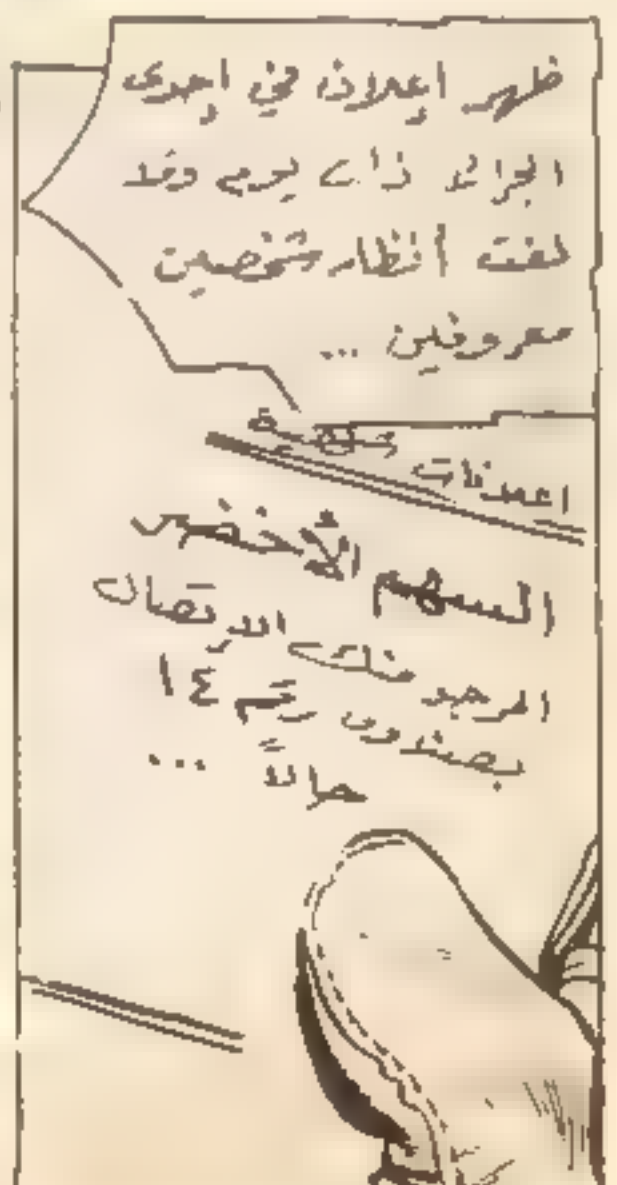 ظهر إعلان في إحدى
الجرائد ذات يوم وقد
لفت أنظار شخصين
معروفين ...
اعلانات مبوبة
السهم الأخضر
المرجو منك الاتصال
بصندوق رقم ١٤
حالاً ...